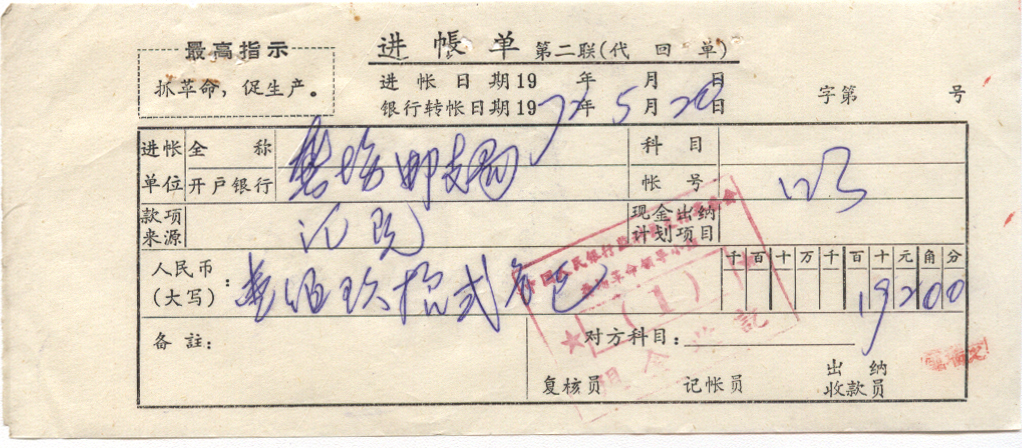 最高指示
抓革命，促生产。
进帳单 第二联(代回单)
进帐日期19 年 月 日
银行转帐日期1972年5月20日
字第 号
进帐单位 全称 邮支局
开户银行
科目
帐号
款项来源 汇兑
现金出纳计划项目
人民币：(大写) 壹佰玖拾贰元
千百十万千百十元角分
19200
备註：
对方科目：
(1)
复核员 记帐员 出纳收款员